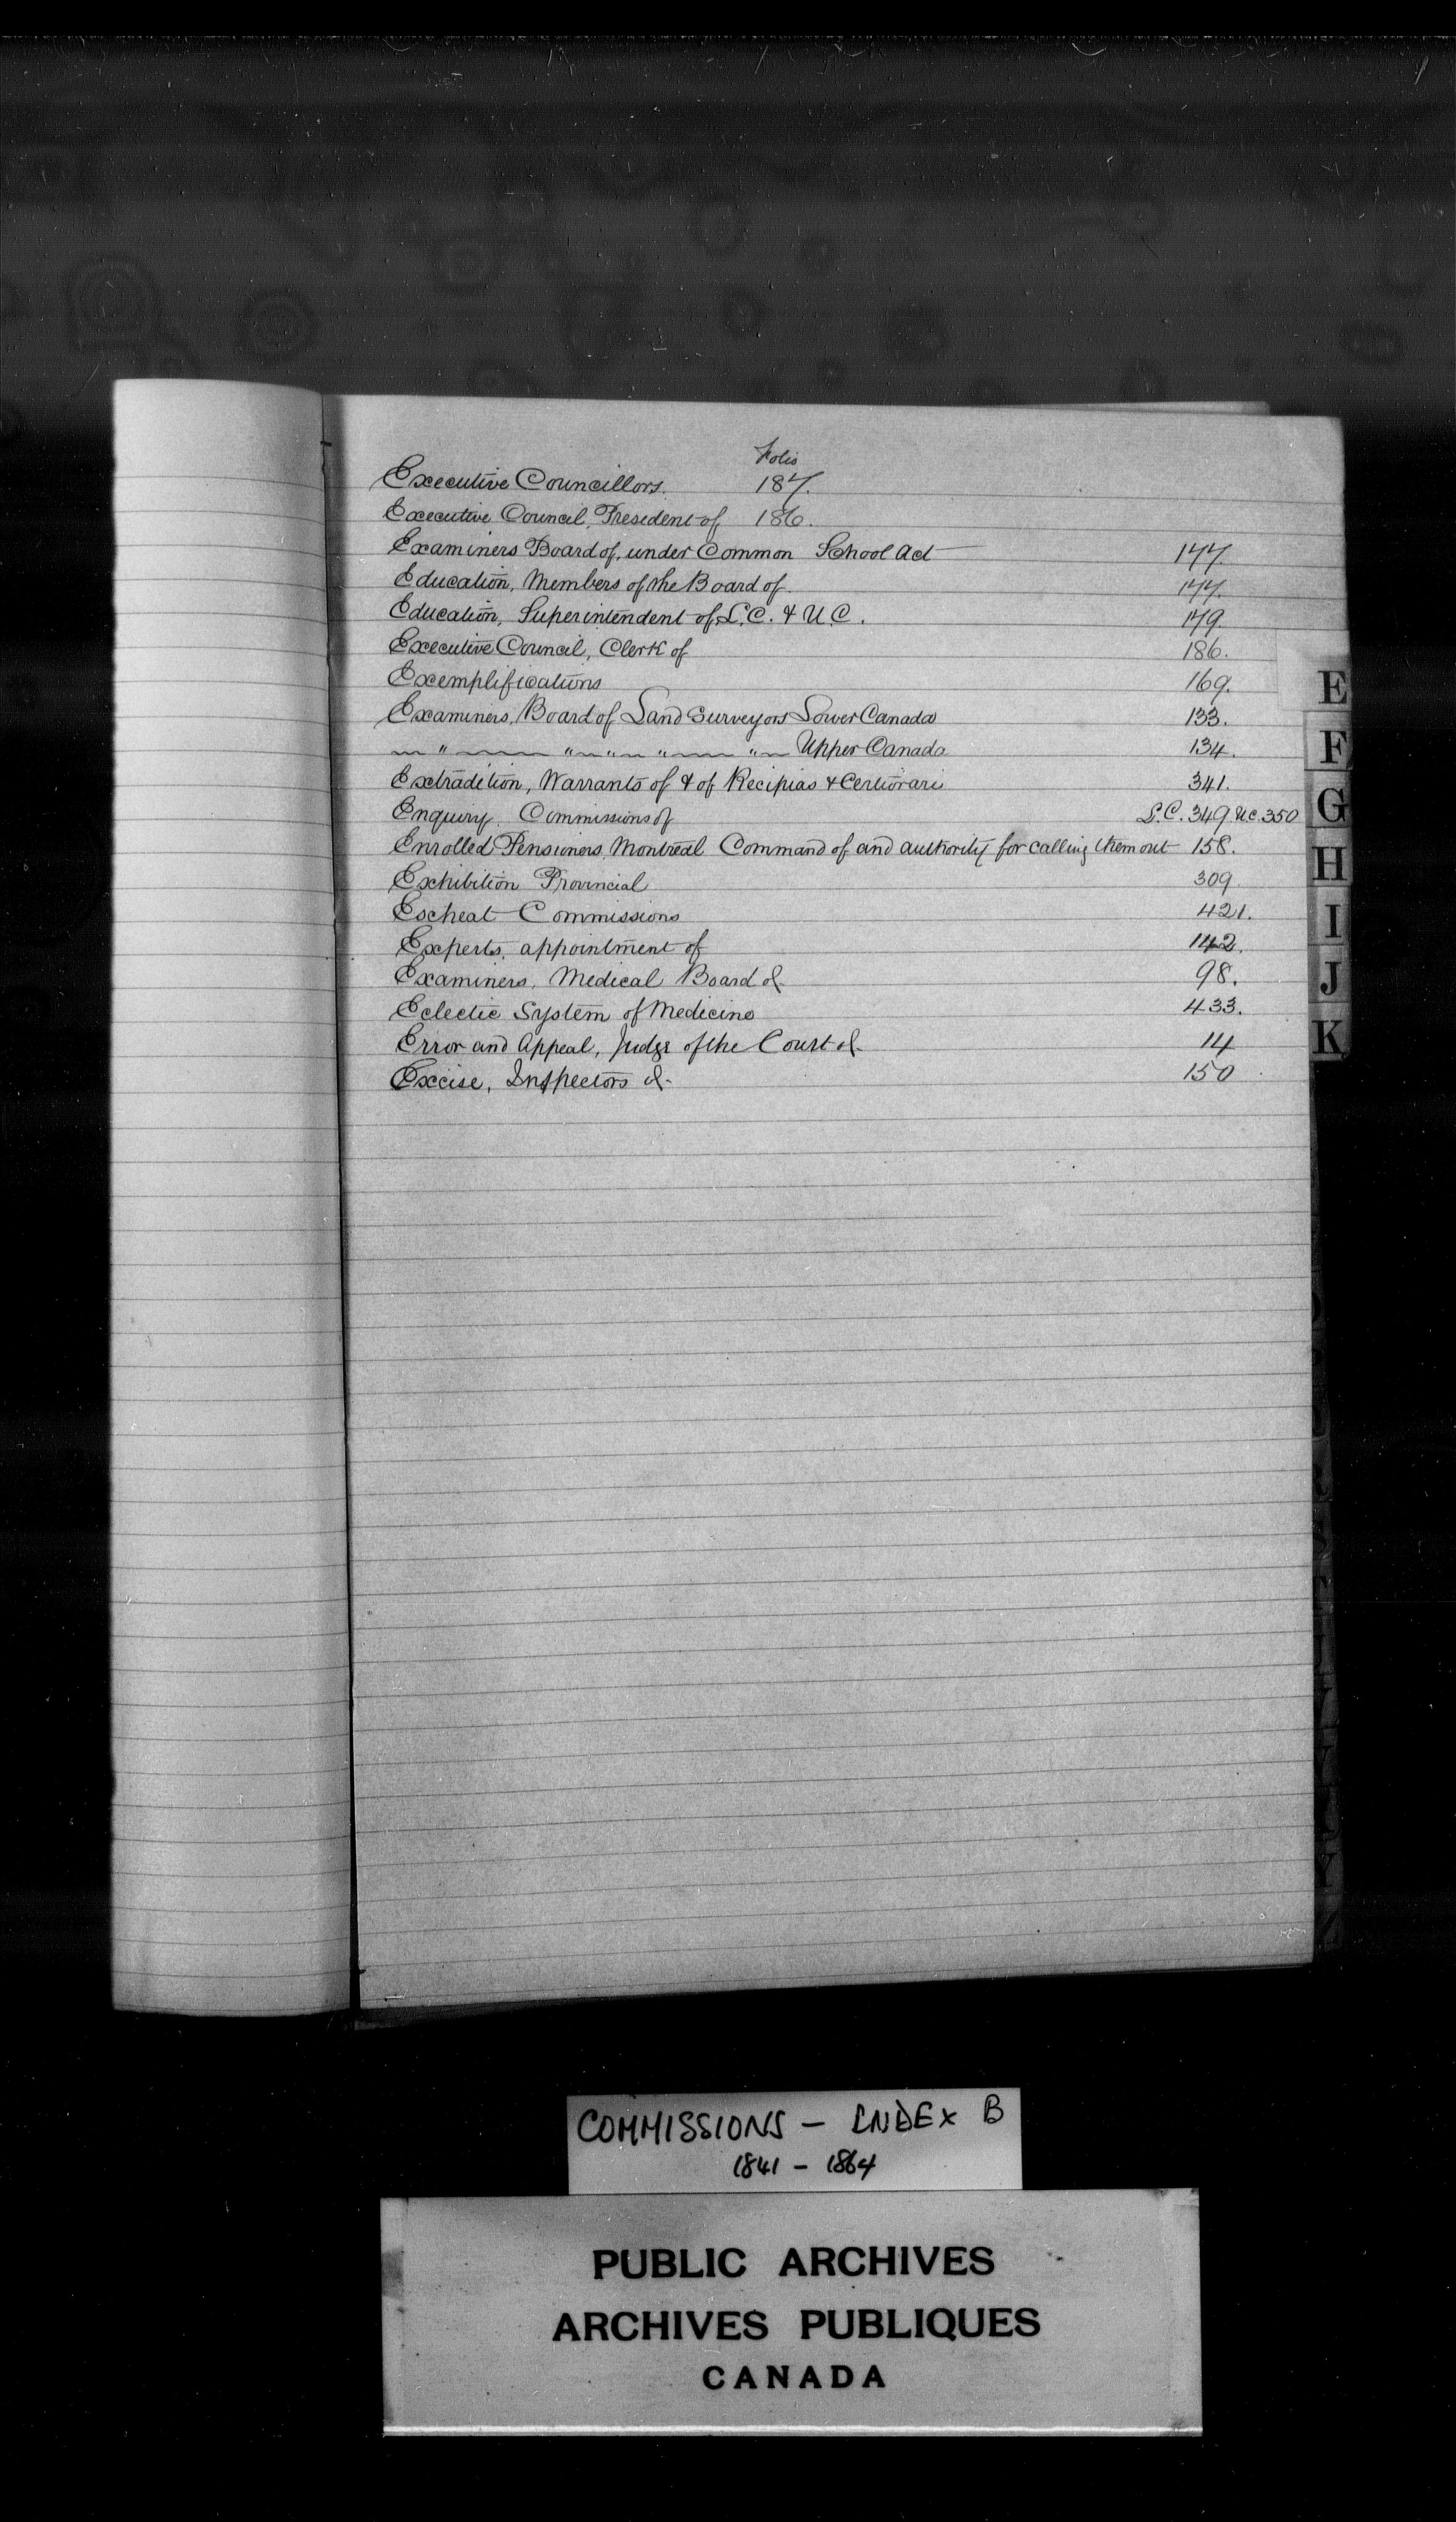 Folio
Executive Councillors. 187.
Executive Council, President of 186.
Examiners Board of, under Common School Act 147.
Education, Members of the Board of. 147.
Education, Superintendent of L.C. & U.C. 149.
Executive Council, Clerk of 186.
Exemplifications 169.
Examiners, Board of Land Surveyors Lower Canada 133.
" " " " " Upper Canada 134.
Extradition, Warrants of & of Recipias & Certiorari 341.
Enquiry. Commissions of L.C. 349. U.C. 350
Enrolled Pensioners, Montreal Command of and authority for calling them out 158.
Exhibition Provincial 309
Escheat Commissions 421.
Experts, appointment of 142.
Examiners, Medical Board of. 98.
Eclectic System of Medicine 433.
Error and Appeal, Judge of the Court of. 14
Excise, Inspectors of. 150
E
F
G
H
I
J
K
COMMISSIONS - INDEX B
1841 - 1864
PUBLIC ARCHIVES
ARCHIVES PUBLIQUES
CANADA